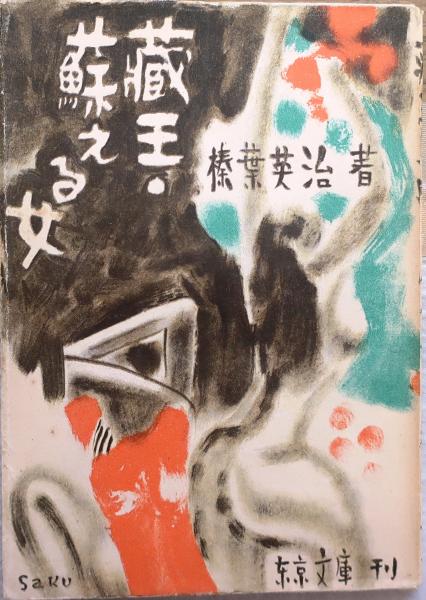 藏王・
蘇える女
榛葉英治著
東京文庫刊
Saku